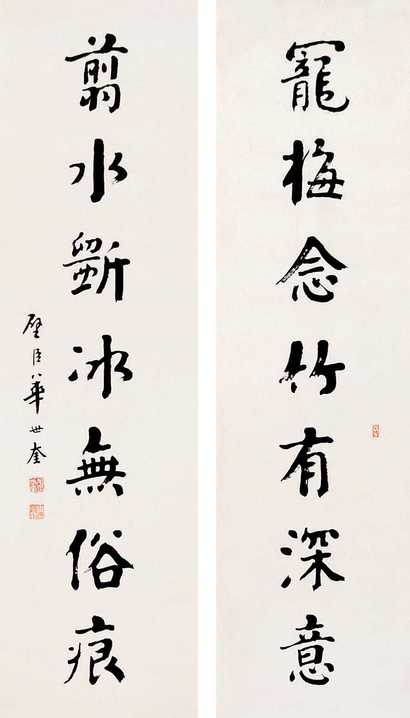 寵梅念竹有深意
翦水斲冰無俗痕
璧臣華世奎